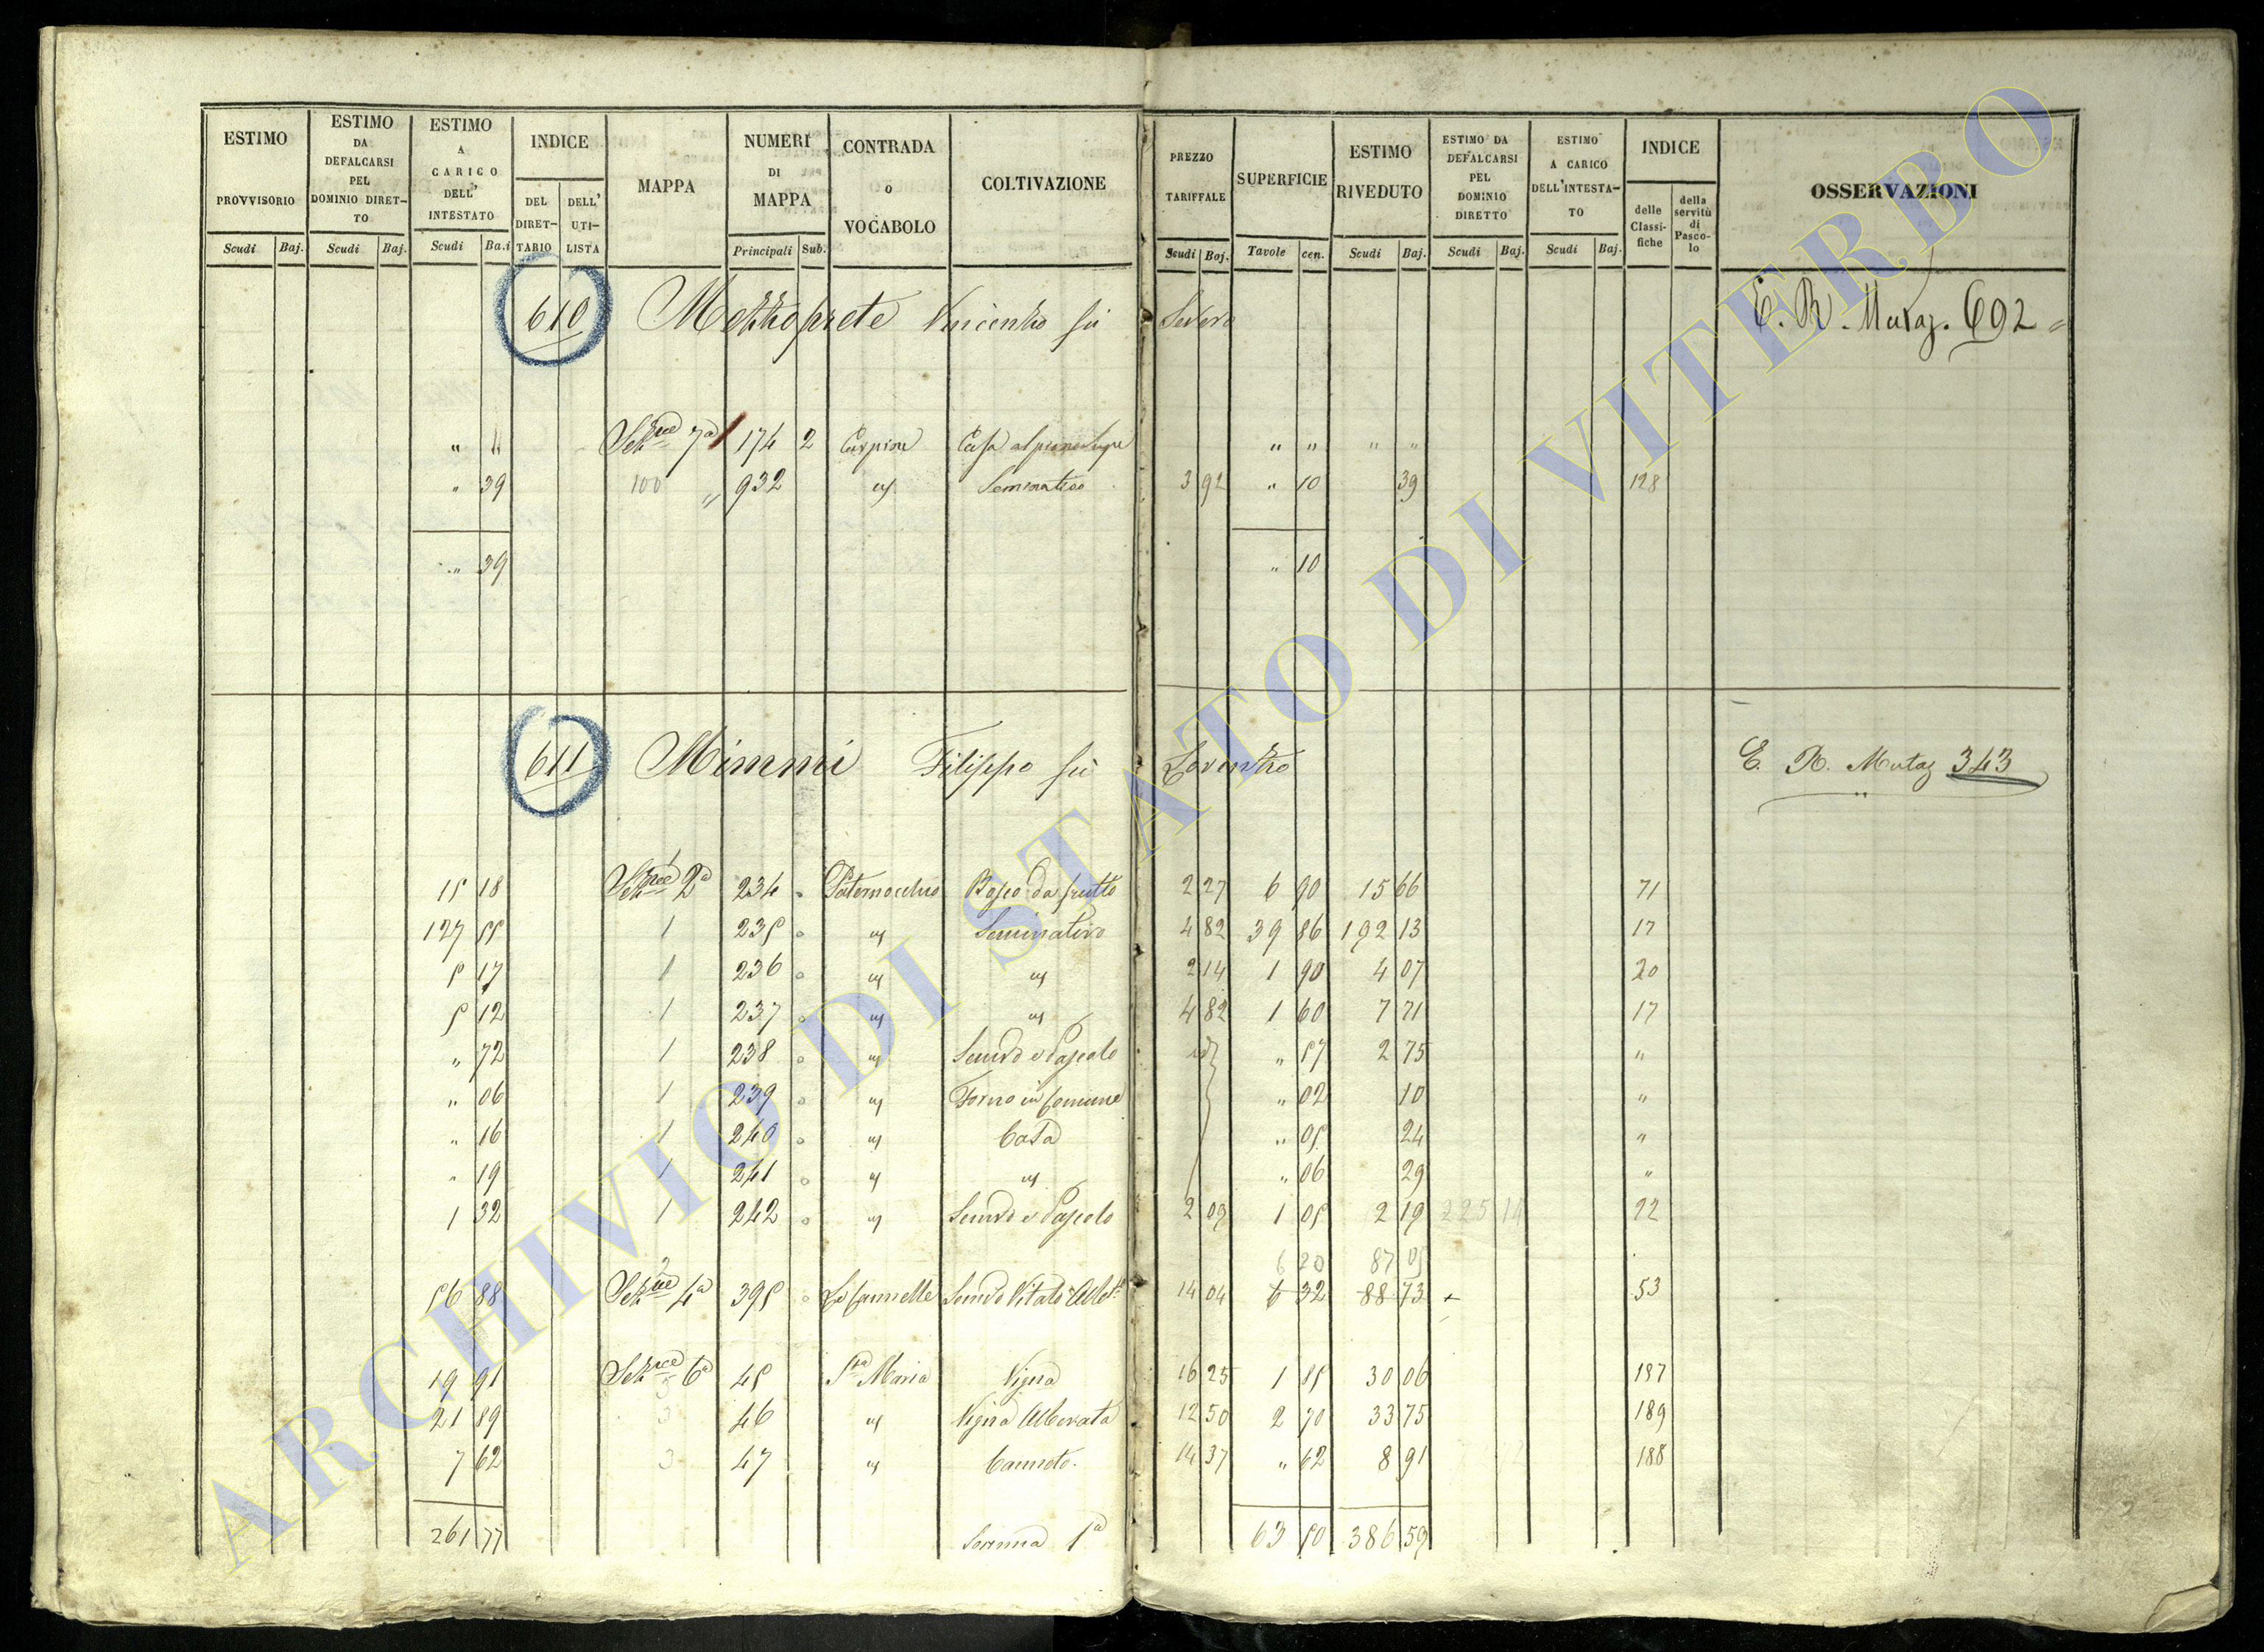 ESTIMO PROVVISORIO Scudi Baj.
ESTIMO DA DEFALCARSI PEL DOMINIO DIRETTO Scudi Baj.
ESTIMO A CARICO DELL' INTESTATO Scudi Ba.i
INDICE DEL DIRETTARIO DELL' UTILISTA
MAPPA
NUMERI DI MAPPA Principali Sub.
CONTRADA O VOCABOLO
COLTIVAZIONE
PREZZO TARIFFALE Scudi Baj.
SUPERFICIE Tavole cen.
ESTIMO RIVEDUTO Scudi Baj.
ESTIMO DA DEFALCARSI PEL DOMINIO DIRETTO Scudi Baj.
ESTIMO A CARICO DELL'INTESTATO Scudi Baj.
INDICE delle Classifiche della servitù di Pascolo
OSSERVAZIONI
610 Mezzoprete Vincenzo fu Severo E. R. Mutaz. 692
" " Sezne 7a 174 2 Casa al piano " " " "
" 39 100 " 932 Seminativo 3 92 " 10 39 128
" 39 " 10
611 Mimmi Filippo fu Lorenzo E. R. Mutaz 343
15 18 Sezne 2a 234 Paternocchio Bosco da frutto 2 27 6 90 15 66 71
127 55 1 235 Seminativo 4 82 39 86 192 13 17
5 17 1 236 2 14 1 90 4 07 20
5 12 1 237 4 82 1 60 7 71 17
" 72 1 238 Semvo e Pascolo id " 57 2 75 "
" 06 1 239 Forno in Comune " 02 10 "
" 16 1 240 Casa " 05 24 "
" 19 1 241 " 06 29 "
1 32 1 242 Semvo e Pascolo 2 09 1 05 2 19 225 14 22
6 20 87 05
56 88 Sezne 4a 395 Le Cannelle Semvo Vitato Albto 14 04 6 32 88 73 53
19 91 Sezne 6a 45 Sta Maria Vigna 16 25 1 85 30 06 187
21 89 3 46 Vigna Alberata 12 50 2 70 33 75 189
7 62 3 47 Canneto 14 37 " 62 8 91 188
261 77 Somma 1a 63 50 386 59
ARCHIVIO DI STATO DI VITERBO